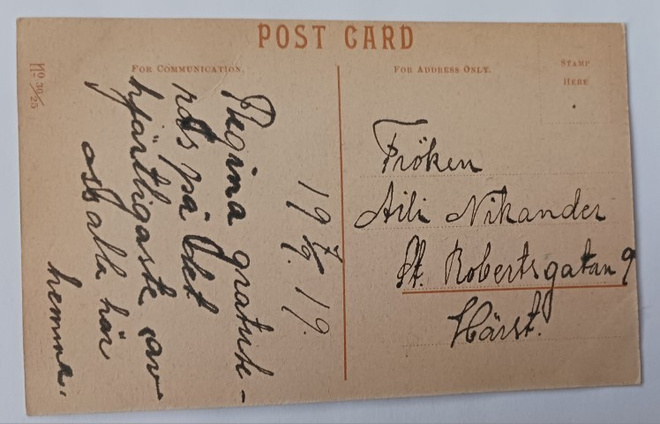 POST CARD
No 30/25
FOR COMMUNICATION.
FOR ADDRESS ONLY.
STAMP
HERE
19 7/9. 19.
Regina gratule-
ras på det
hjärtligaste av
oss alla här
hemma.
Fröken
Aili Nikander
St. Robertsgatan 9
Härst.